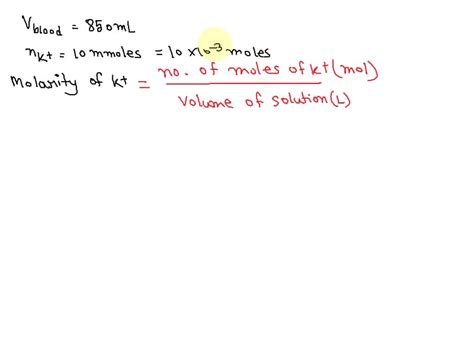 Vblood = 850mL
nK+ = 10 mmoles = 10 x10-3 moles
Molarity of K+ = no. of moles of K+ (mol)
Volume of solution (L)